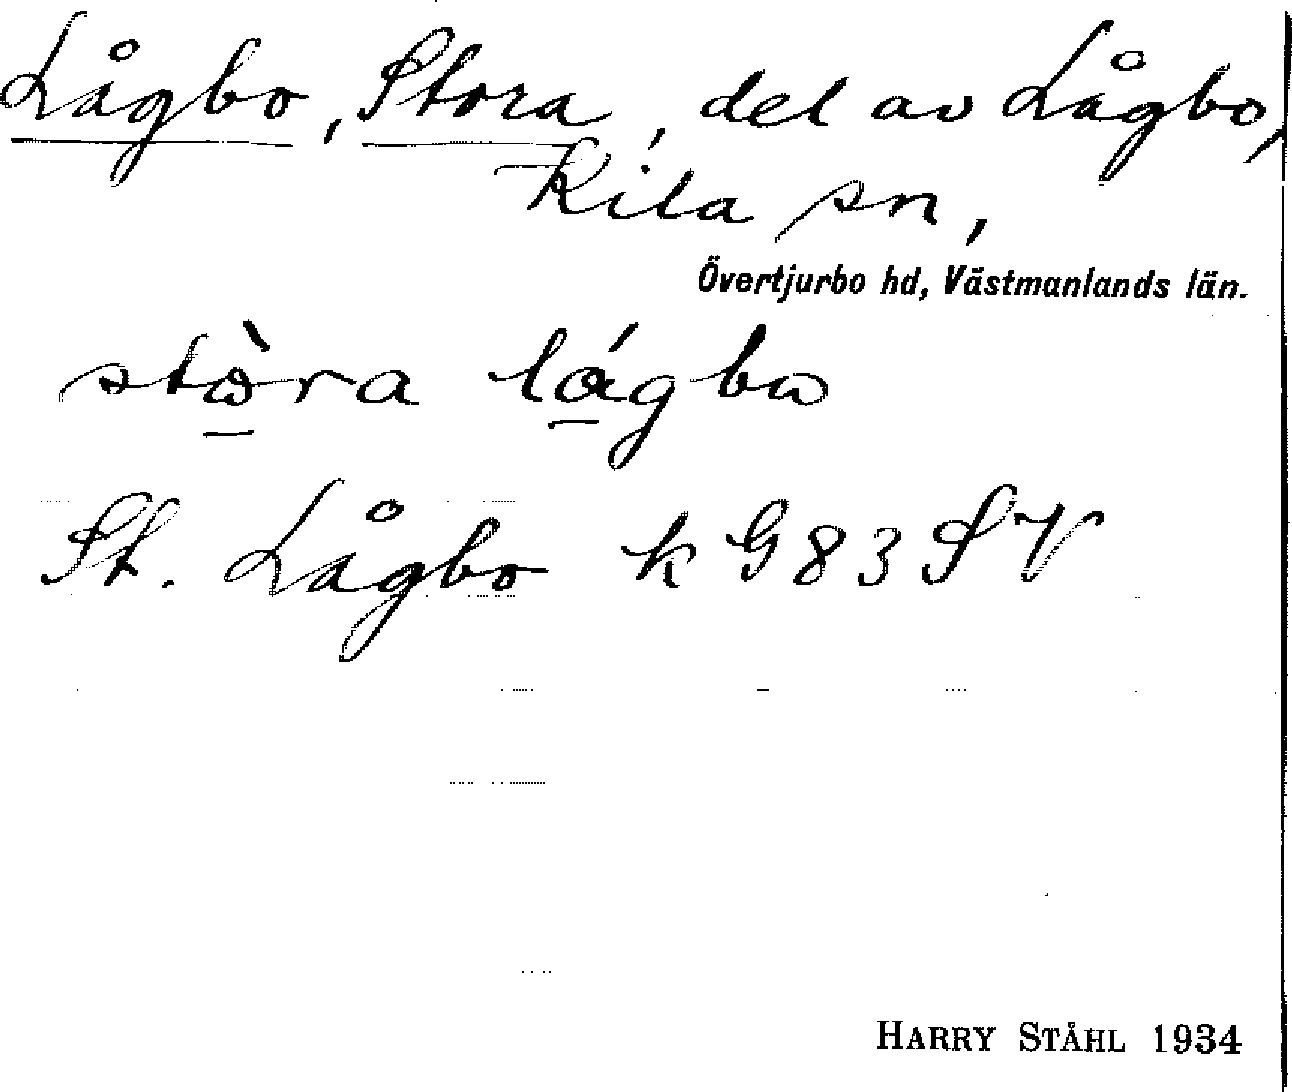 Lågbo, Stora, del av Lågbo,
Kila sn,
Övertjurbo hd, Västmanlands län.
stòra lágbω
St. Lågbo k G 83 SV
HARRY STÅHL 1934